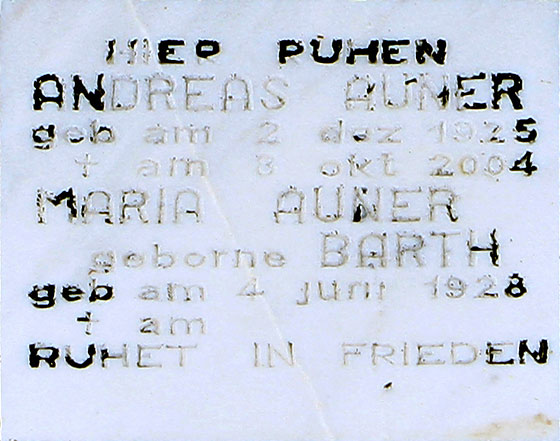 HIER RUHEN
ANDREAS AUNER
geb am 2 dez 1925
† am 8 okt 2004
MARIA AUNER
geborne BARTH
geb am 4 juni 1928
† am
RUHET IN FRIEDEN